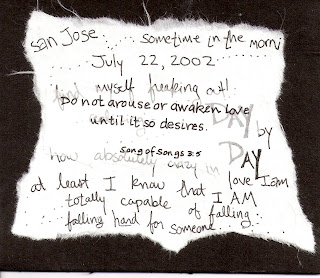 san Jose : sometime in the morni
July 22, 2002
find myself freaking out!
Do not arouse or awaken love
until it so desires.
DAY by
Song of Songs 3:5
DAY
how absolutely crazy in love I am
at least I know that I AM
totally capable of falling
falling hard for someone